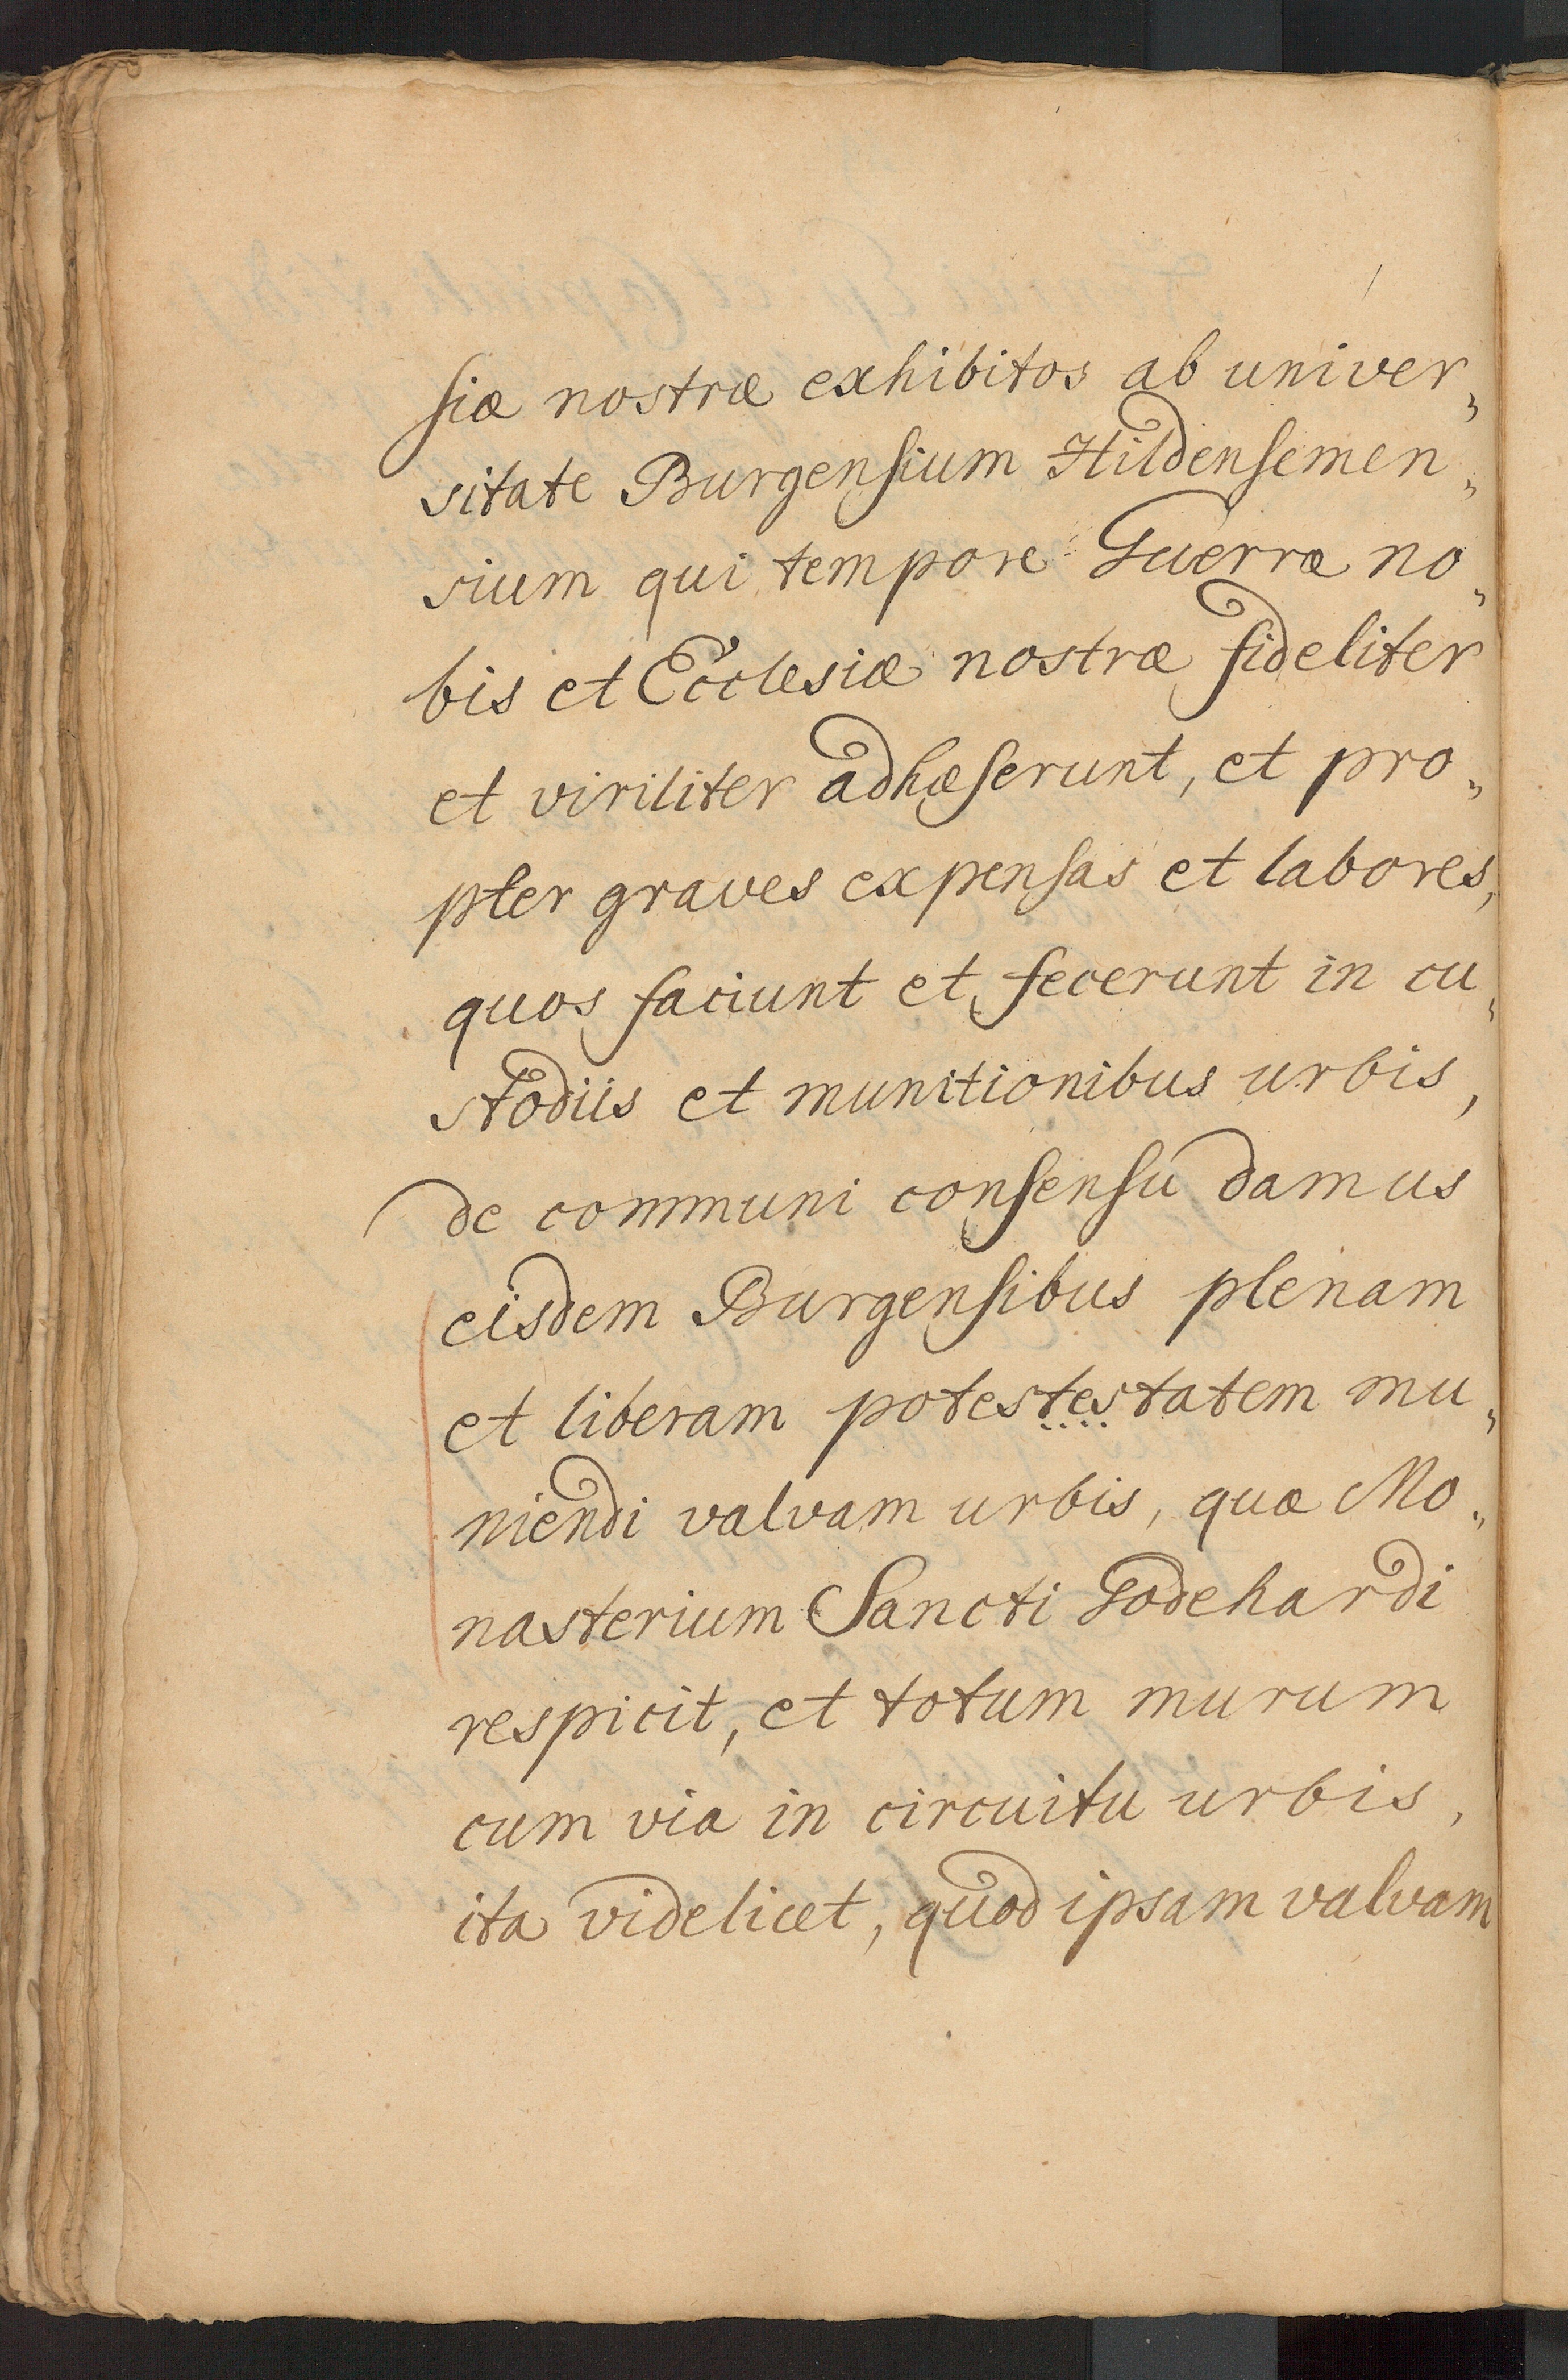 siæ nostræ exhibitos ab univer„
sitate Burgensium Hildensemen„
sium qui tempore Guerræ no„
bis et Ecclesiæ nostræ fideliter
et viriliter adhæserunt, et pro„
pter graves expensas et labores,
quos faciunt et fecerunt in cu„
stodiis et munitionibus urbis,
de communi consensu damus
eisdem Burgensibus plenam
et liberam potestestatem mu„
niendi valvam urbis, quæ Mo„
nasterium Sancti Godehardi
respicit, et totum murum
cum via in circuitu urbis,
ita videlicet, quod ipsam valvam